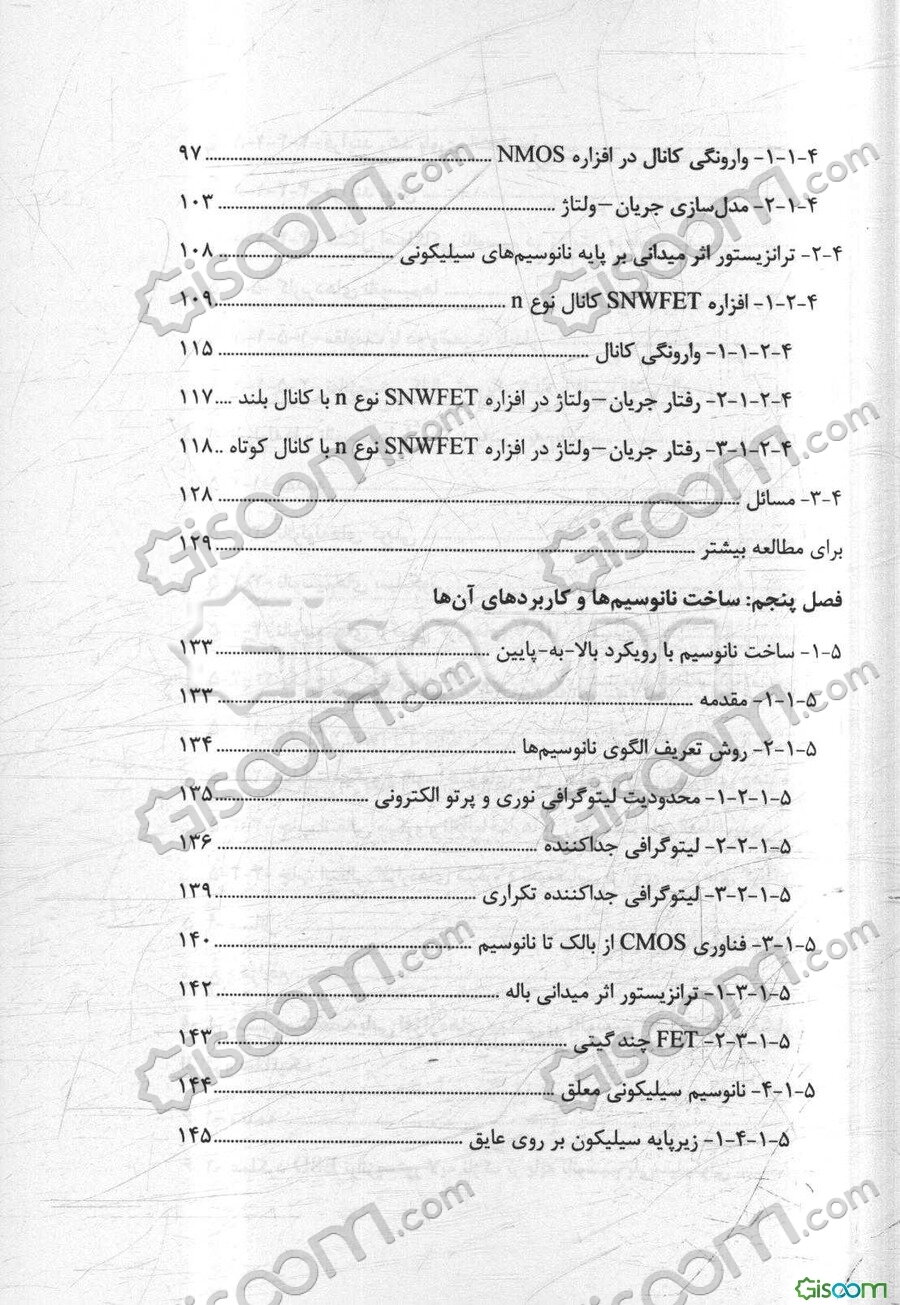 ۴-۱-۱- وارونگی کانال در افزاره NMOS ........ ۹۷
۴-۱-۲- مدل‌سازی جریان–ولتاژ ........ ۱۰۳
۴-۲- ترانزیستور اثر میدانی بر پایه نانوسیم‌های سیلیکونی ........ ۱۰۸
۴-۲-۱- افزاره SNWFET کانال نوع n ........ ۱۰۹
۴-۲-۱-۱- وارونگی کانال ........ ۱۱۵
۴-۲-۱-۲- رفتار جریان–ولتاژ در افزاره SNWFET نوع n با کانال بلند .... ۱۱۷
۴-۲-۱-۳- رفتار جریان–ولتاژ در افزاره SNWFET نوع n با کانال کوتاه .. ۱۱۸
۴-۳- مسائل ........ ۱۲۸
برای مطالعه بیشتر ........ ۱۲۹
فصل پنجم: ساخت نانوسیم‌ها و کاربردهای آن‌ها
۵-۱- ساخت نانوسیم با رویکرد بالا-به-پایین ........ ۱۳۳
۵-۱-۱- مقدمه ........ ۱۳۳
۵-۱-۲- روش تعریف الگوی نانوسیم‌ها ........ ۱۳۴
۵-۱-۲-۱- محدودیت لیتوگرافی نوری و پرتو الکترونی ........ ۱۳۵
۵-۱-۲-۲- لیتوگرافی جداکننده ........ ۱۳۶
۵-۱-۲-۳- لیتوگرافی جداکننده تکراری ........ ۱۳۹
۵-۱-۳- فناوری CMOS از بالک تا نانوسیم ........ ۱۴۰
۵-۱-۳-۱- ترانزیستور اثر میدانی باله ........ ۱۴۲
۵-۱-۳-۲- FET چند گیتی ........ ۱۴۳
۵-۱-۴- نانوسیم سیلیکونی معلق ........ ۱۴۴
۵-۱-۴-۱- زیرپایه سیلیکون بر روی عایق ........ ۱۴۵
Gisoom.com
Gisoom